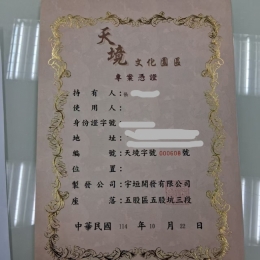 天境文化園區
專業憑證
持有人：
使用人：
身份證字號：
地址：
編號：天境字號000608號
位置：
製發公司：宇垣開發有限公司
座落：五股區五股坑三段
中華民國 114 年 10 月 22 日